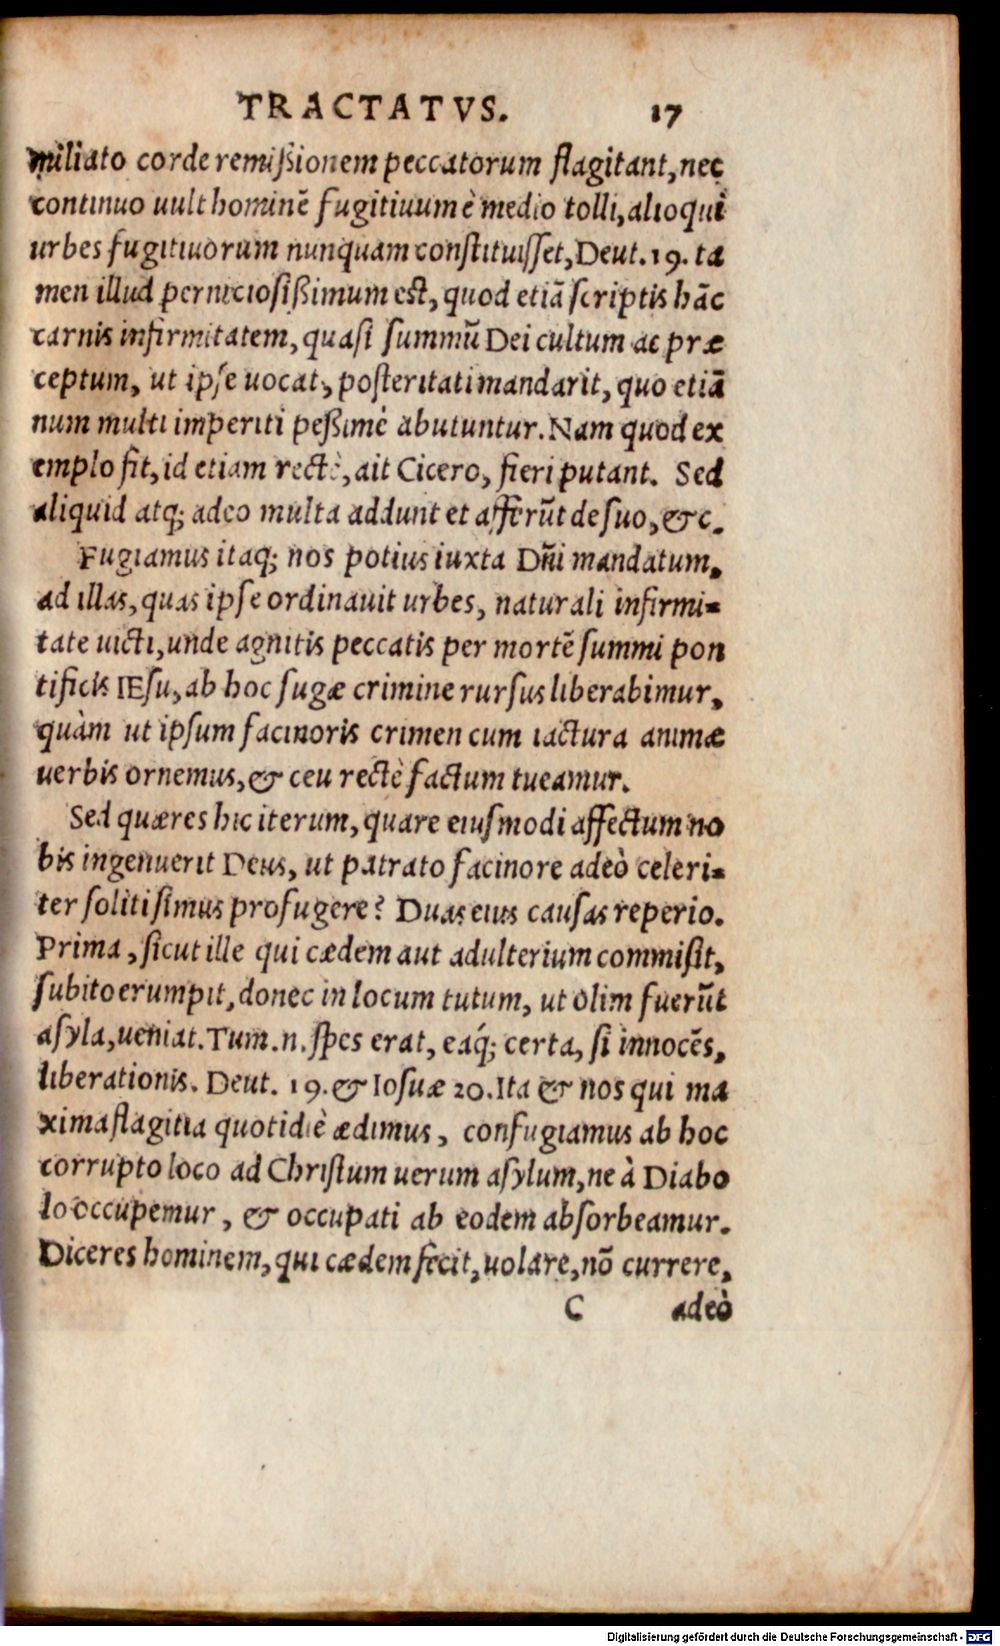 TRACTATVS. 17
miliato corde remißionem peccatorum flagitant, nec
continuo uult hominē fugitiuum è medio tolli, alioqui
urbes fugitiuorum nunquam constituisset, Deut. 19. ta
men illud perniciosißimum est, quod etiā scriptis hāc
carnis infirmitatem, quasi summū Dei cultum ac præ
ceptum, ut ipse uocat, posteritati mandarit, quo etiā
num multi imperiti peßimè abutuntur. Nam quod ex
emplo fit, id etiam rectè, ait Cicero, fieri putant. Sed
aliquid atq; adeo multa addunt et afferūt de suo, &c.
Fugiamus itaq; nos potius iuxta Dñi mandatum,
ad illas, quas ipse ordinauit urbes, naturali infirmi-
tate uicti, unde agnitis peccatis per mortē summi pon
tificis IEsu, ab hoc fugæ crimine rursus liberabimur,
quàm ut ipsum facinoris crimen cum iactura animæ
uerbis ornemus, & ceu rectè factum tueamur.
Sed quæres hic iterum, quare eiusmodi affectum no
bis ingenuerit Deus, ut patrato facinore adeò celeri-
ter solitisimus profugere? Duas eius causas reperio.
Prima, sicut ille qui cædem aut adulterium commisit,
subito erumpit, donec in locum tutum, ut olim fuerūt
asyla, ueniat. Tum .n. spes erat, eaq́; certa, si innocēs,
liberationis. Deut. 19. & Iosuæ 20. Ita & nos qui ma
xima flagitia quotidiè ædimus, confugiamus ab hoc
corrupto loco ad Christum uerum asylum, ne à Diabo
lo occupemur, & occupati ab eodem absorbeamur.
Diceres hominem, qui cædem fecit, uolare, nō currere,
C adeò
Digitalisierung gefördert durch die Deutsche Forschungsgemeinschaft - DFG